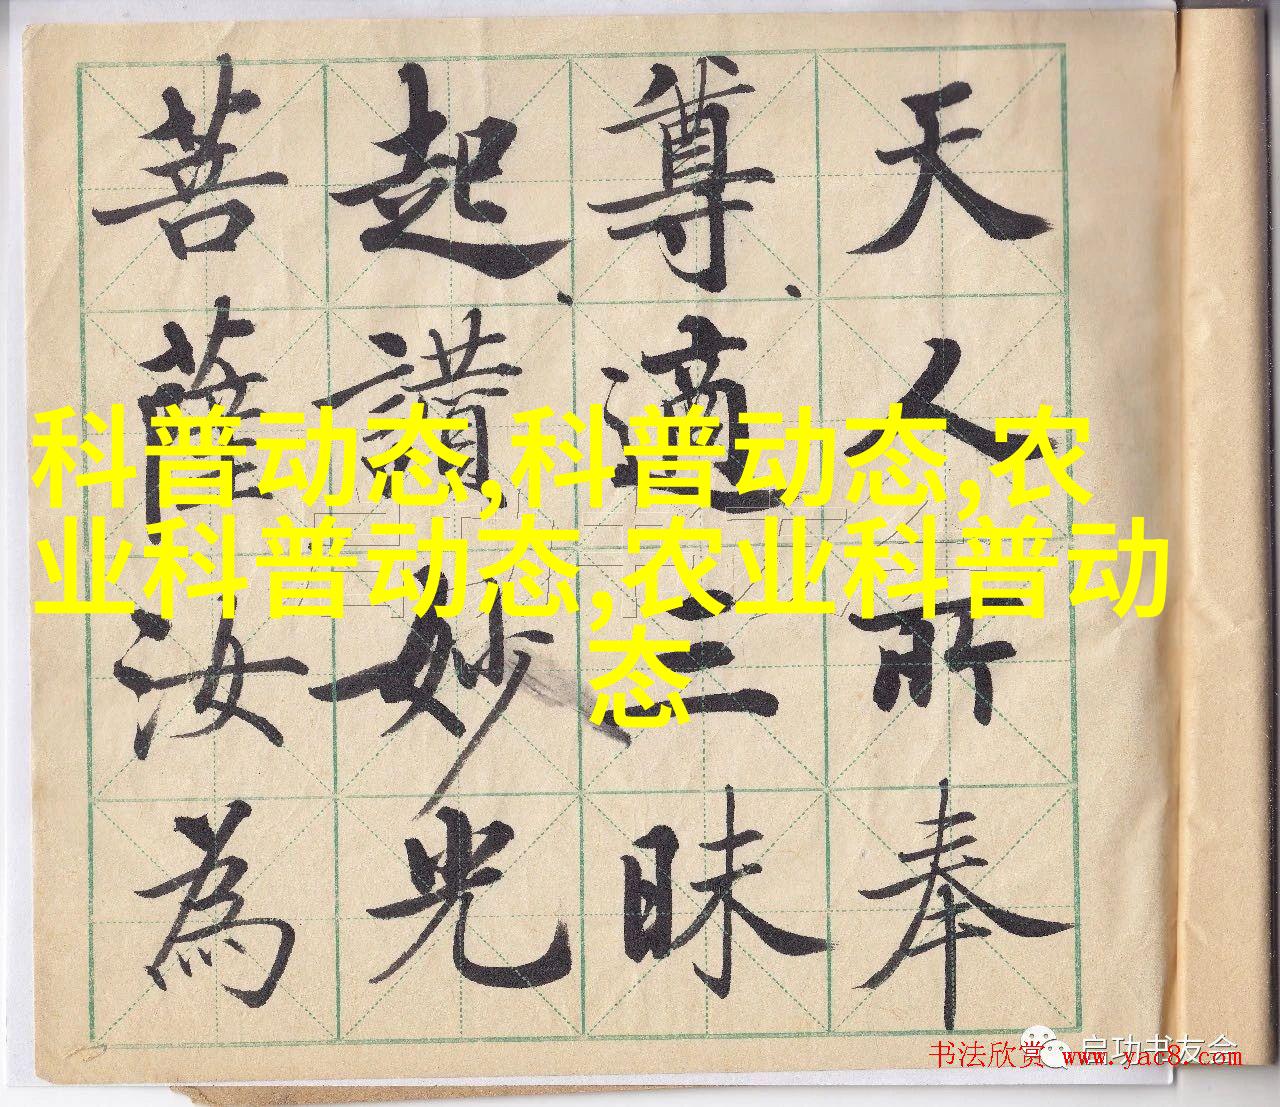 天人所奉
尊、適三昧
起、讃妙光
菩薩汝為
科普动态,科普动态,农
业科普动态,农业科普动
态
启功书友会
书法欣赏 www.yac8.com